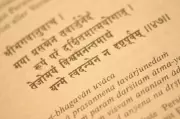 श्रीभगवानुवाच ।
मया प्रसन्नेन तवार्जुनेदं
रूपं परं दर्शितमात्मयोगात् ।
तेजोमयं विश्वमनन्तमाद्यं
यन्मे त्वदन्येन न दृष्टपूर्वम् ॥४७॥
-bhagavān uvāca
prasannena tavārjunedaṁ
paraṁ darśitam ātma
viśvam anantam